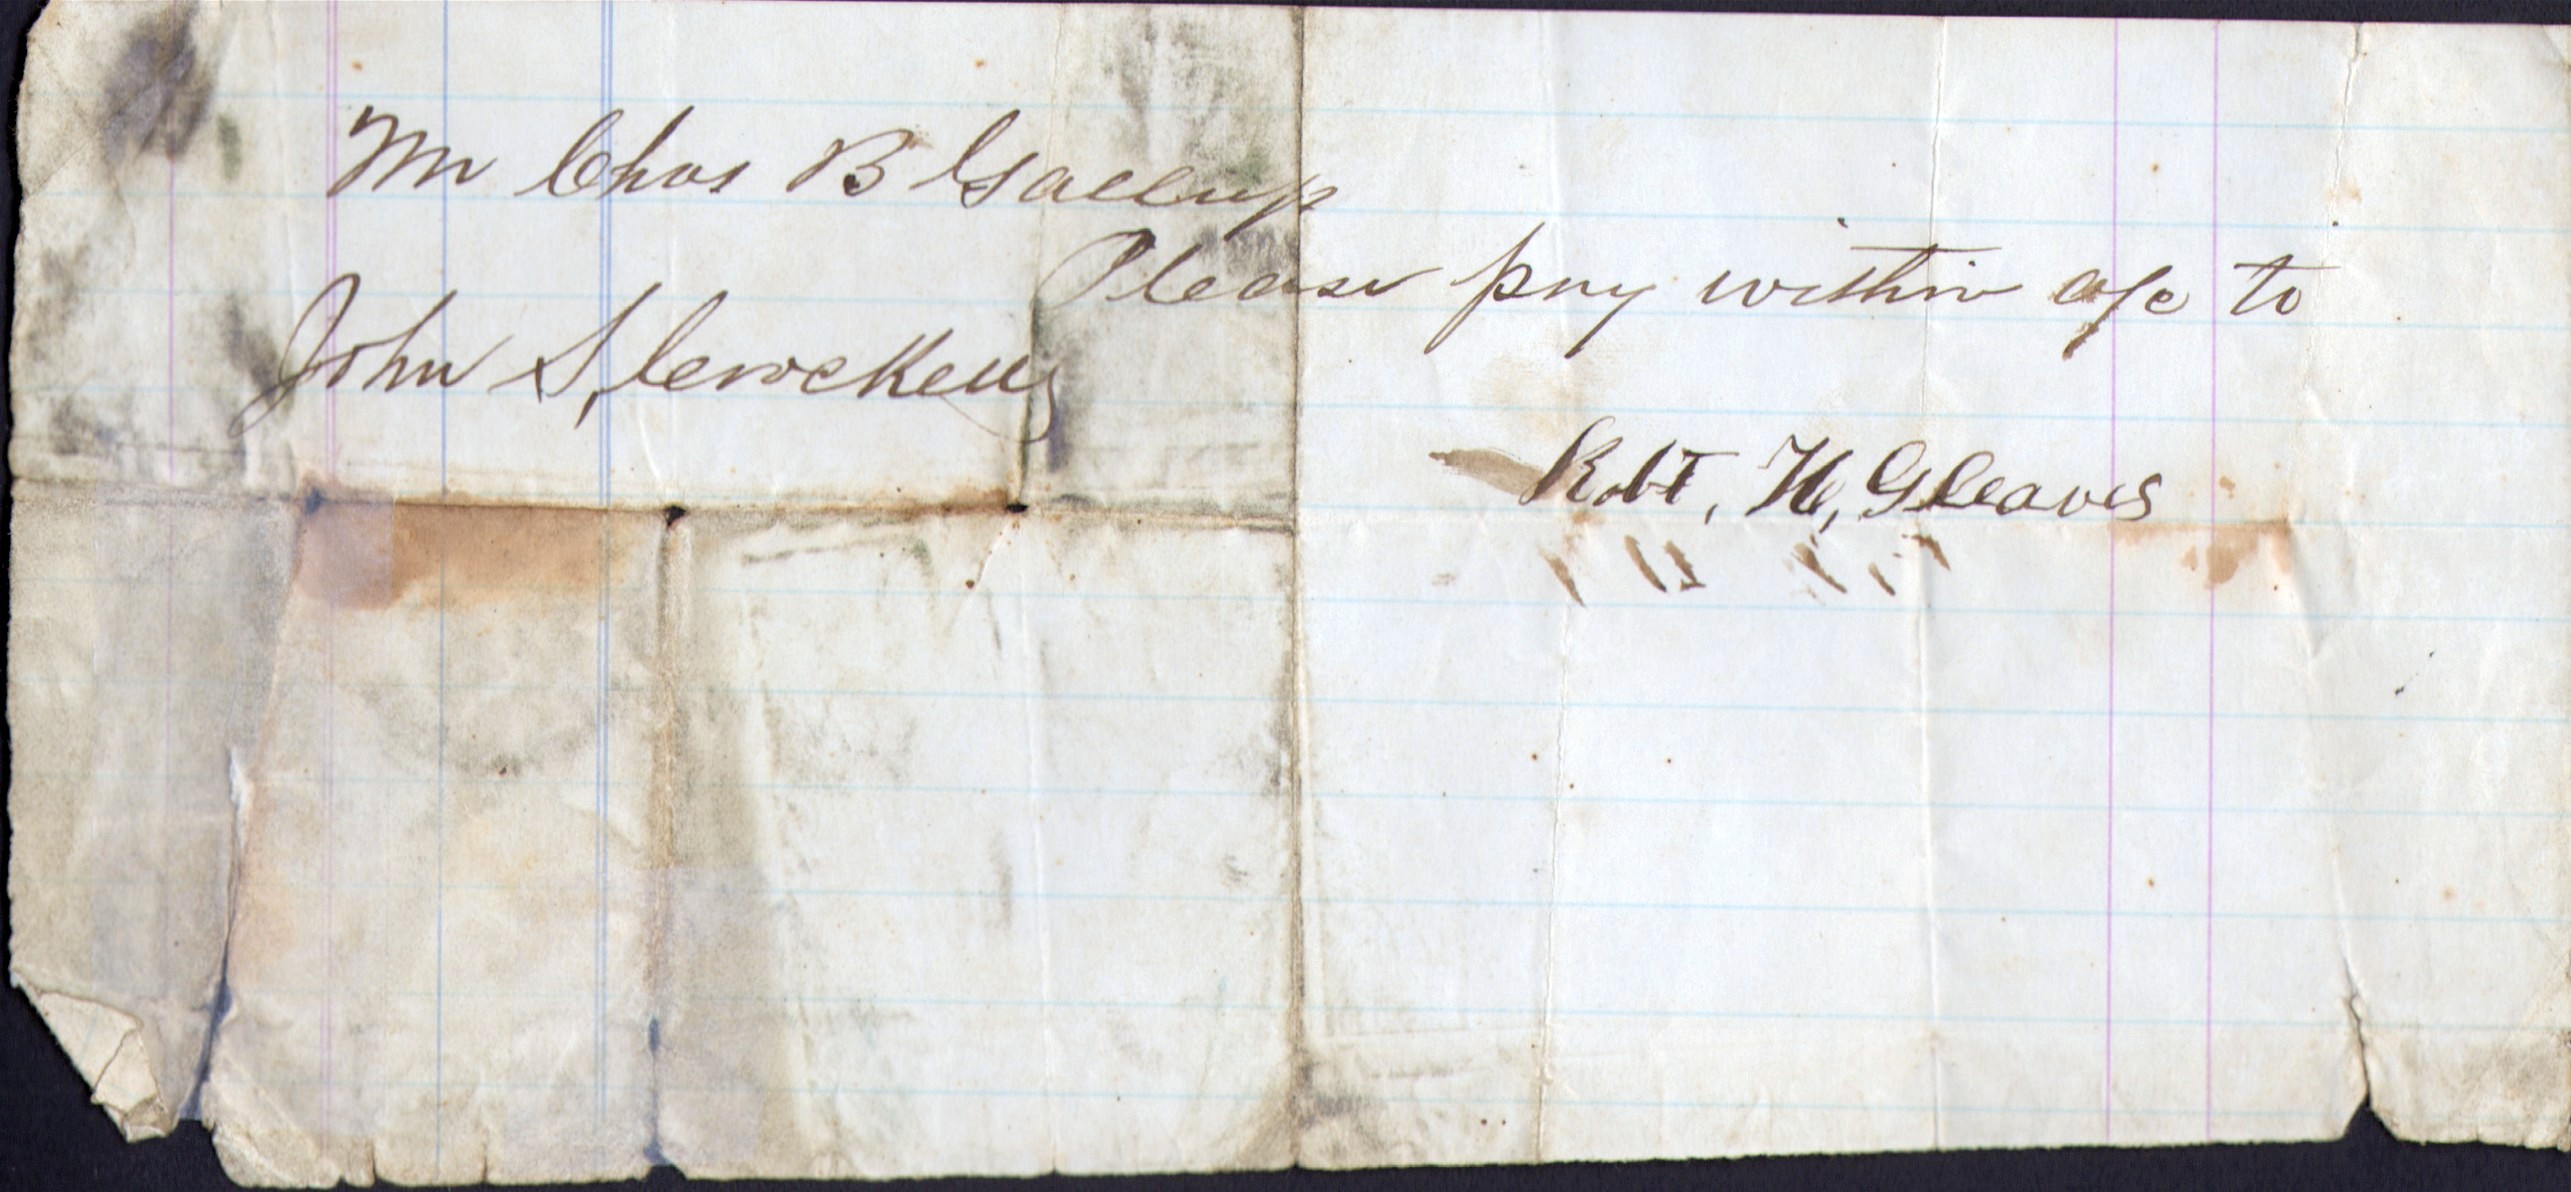 Mr Chas B Gallup
Please pay within a/c to
John S, Crockett
Robt, H, Gleaves